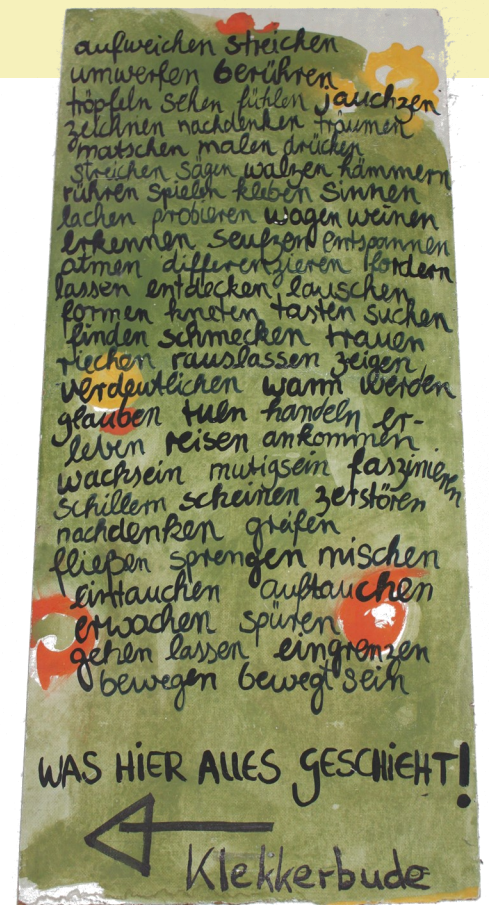 aufweichen streichen
umwerfen berühren
tröpfeln sehen fühlen jauchzen
zeichnen nachdenken träumen
matschen malen drücken
streichen sägen walzen hämmern
rühren spielen kleben sinnen
lachen probieren wagen weinen
erkennen seufzen entspannen
atmen differenzieren fordern
lassen entdecken lauschen
formen kneten tasten suchen
finden schmecken trauen
riechen rauslassen zeigen
verdeutlichen warm werden
glauben tuen handeln er-
leben reisen ankommen
wachsein mutigsein faszinieren
schillern scheinen zerstören
nachdenken greifen
fließen sprengen mischen
eintauchen auftauchen
erwachen spüren
gehen lassen eingrenzen
bewegen bewegt sein
WAS HIER ALLES GESCHIEHT!
Klekkerbude